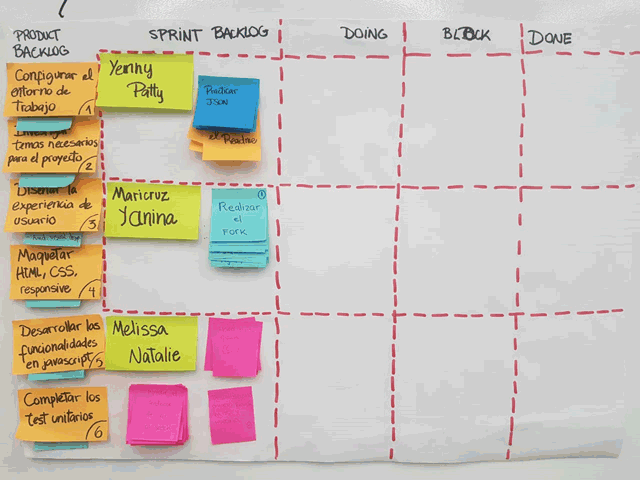 PRODUCT
BACKLOG
SPRINT BACKLOG
DOING
BLOCK
DONE
Configurar el
entorno de
Trabajo
1
temas necesarios
para el proyecto
2
Diseñar la
experiencia de
usuario
3
Maquetar
HTML, CSS,
responsive
4
Desarrollar las
funcionalidades
en javascript
5
Completar los
test unitarios
6
Yenny
Patty
Practicar
JSON
el Readme
Maricruz
Yanina
1
Realizar
el
FORK
Melissa
Natalie